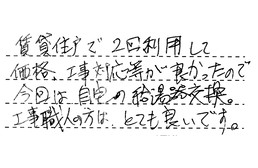 賃貸住戸で2回利用して
価格、工事対応等が良かったので
今回は自宅の給湯器交換。
工事職人の方は、とても良いです。